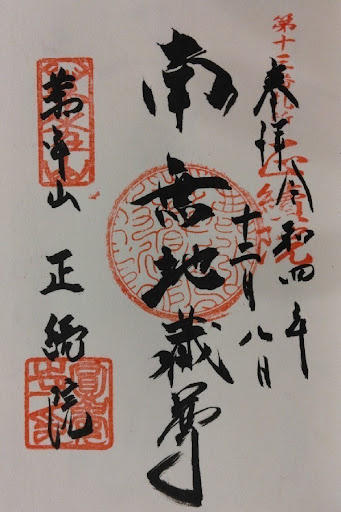 第十三番札所
正續院
奉拝 令和四年
十二月八日
南無地蔵尊
萬年山 正続院